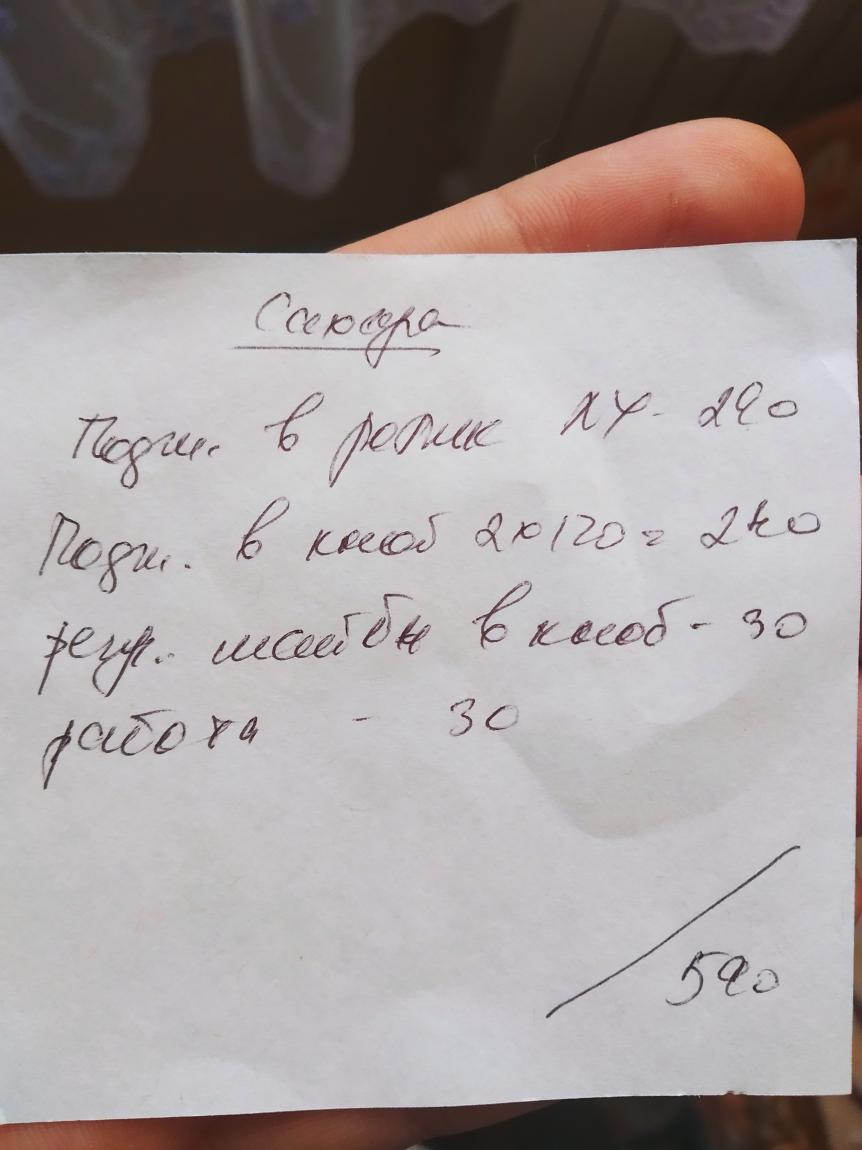 Сакюра
Подш. в ролик ХУ- 290
Подш. в кноб 2х120= 240
регул. шайбы в кноб - 30
работа - 30
590